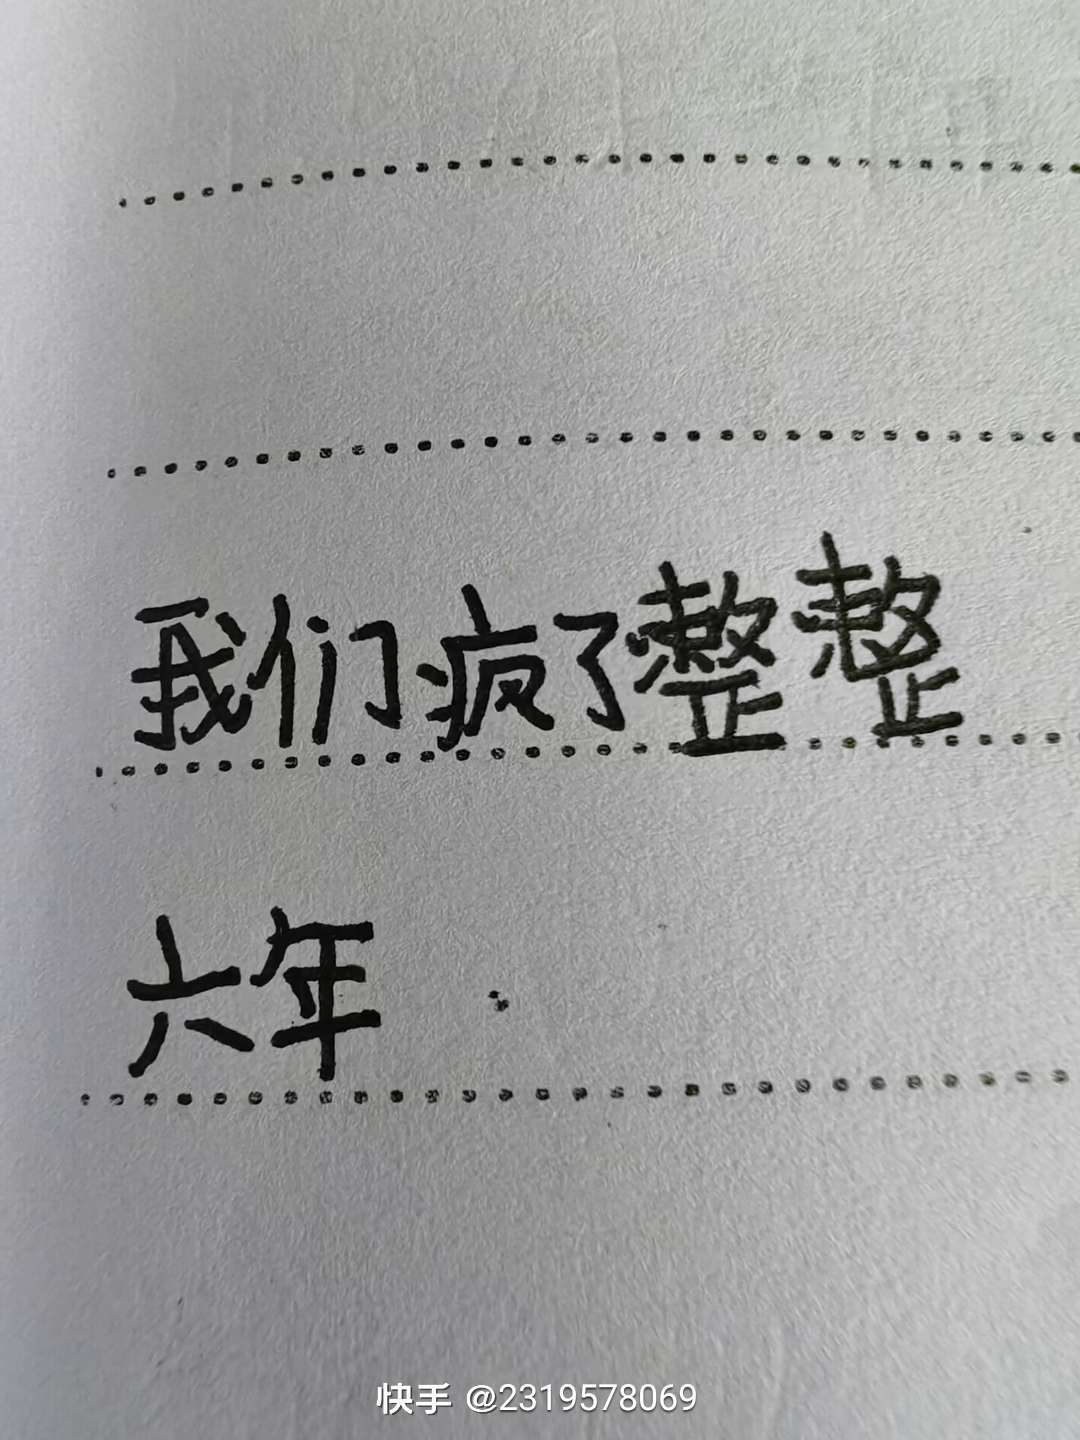 我们疯了整整
六年
快手 @2319578069